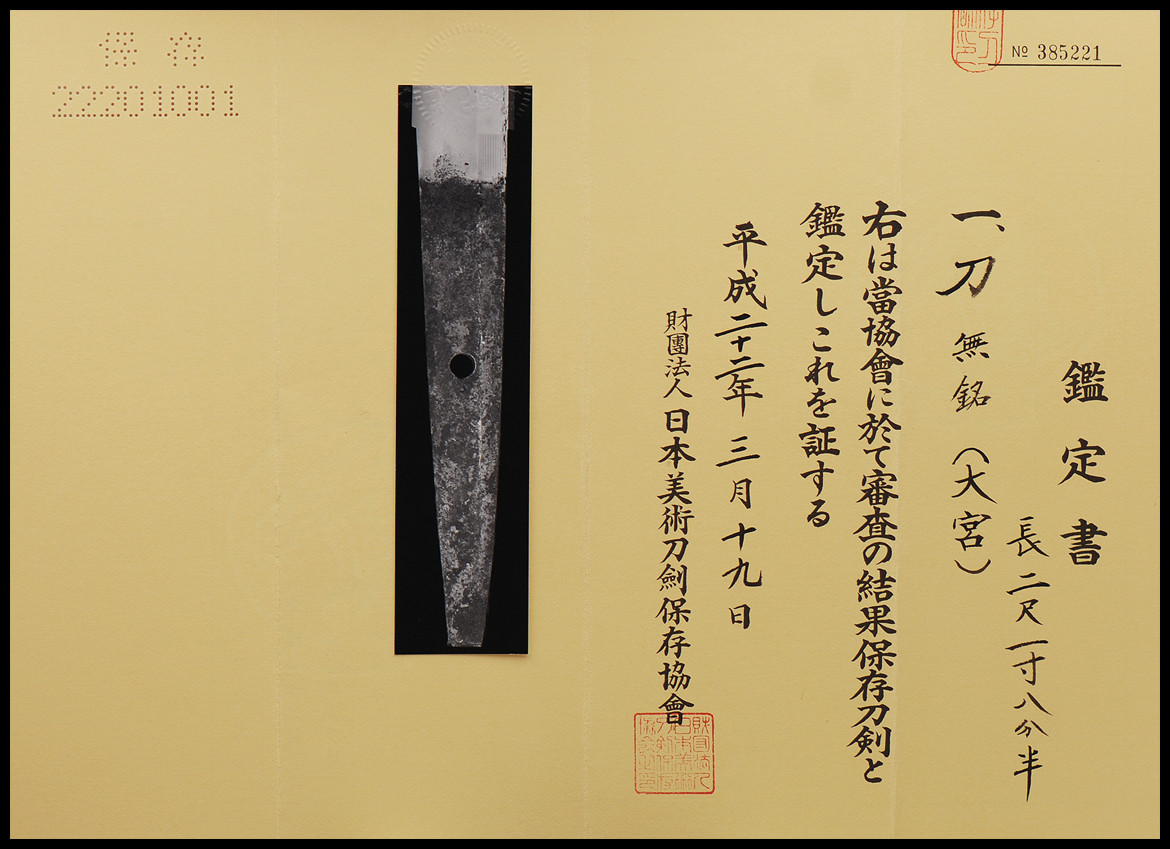 No 385221
鑑定書
長二尺一寸八分半
一、刀 無銘(大宮)
右は當協會に於て審査の結果保存刀剣と
鑑定しこれを証する
平成二十二年三月十九日
財團法人日本美術刀劍保存協會
保存
22201001